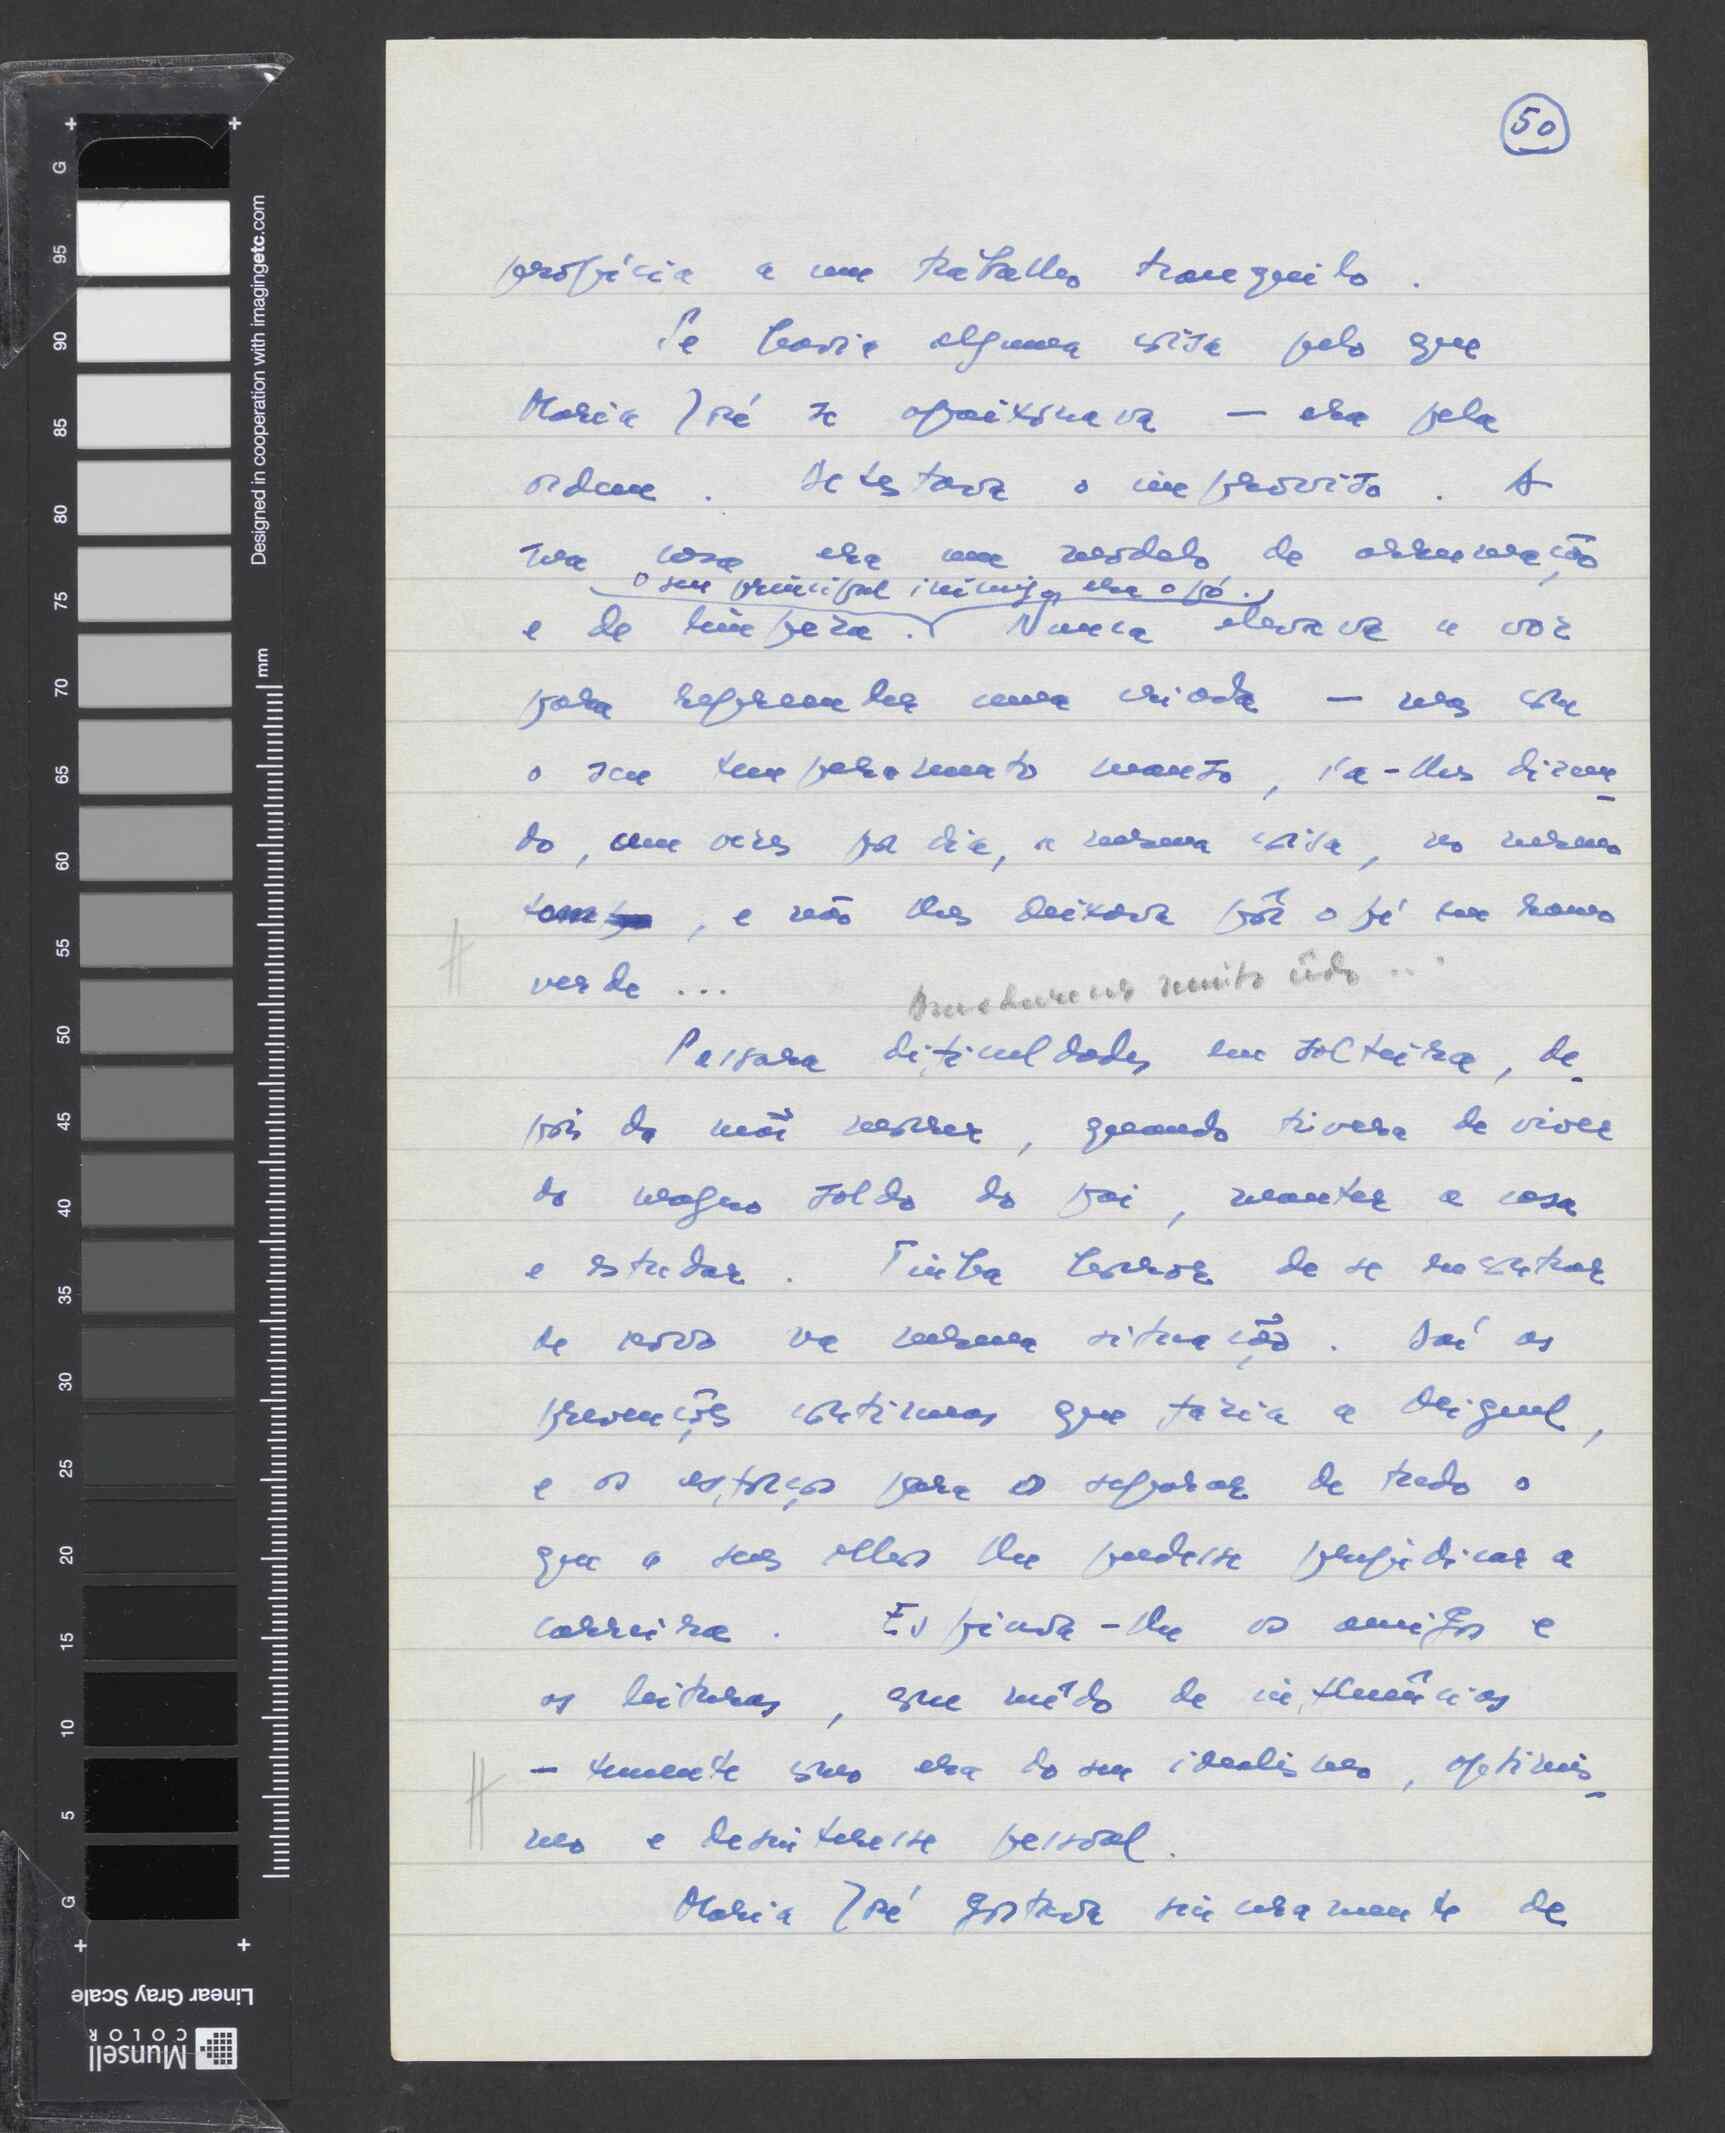 50
propícia a um trabalho tranquilo.
Se havia alguma coisa pelo que
Maria José se apaixonava — era pela
ordem. Detestava o improviso. A
sua casa era um modelo de arrumação
o seu principal inimigo era o pó.
e de limpeza. Nunca elevava a voz
para repreender uma criada — mas com
o seu temperamento manso, ia-lhes dizen-
do, cem vezes por dia, a mesma coisa, no mesmo
tom, e não lhes deixava pôr o pé em ramo
verde ...
muito tudo ...
Passara dificuldades em solteira, de-
pois da mãi morrer, quando tivera de viver
do magro soldo do pai, manter a casa
e estudar. Tinha horror de se encontrar
de novo na mesma situação. Daí as
prevenções contínuas que fazia a Miguel,
e os esforços para o separar de tudo o
que a seus olhos lhe pudesse prejudicar a
carreira. Espiava-lhe os amigos e
as leituras, com mêdo de influências
— temente como era do seu idealismo, optimis-
mo e desinteresse pessoal.
Maria José gostava sinceramente de
Designed in cooperation with imagingetc.com
mm
G 95 90 85 80 75 70 65 60 55 50 45 40 35 30 25 20 15 10 5 G
Linear Gray Scale
Munsell
COLOR